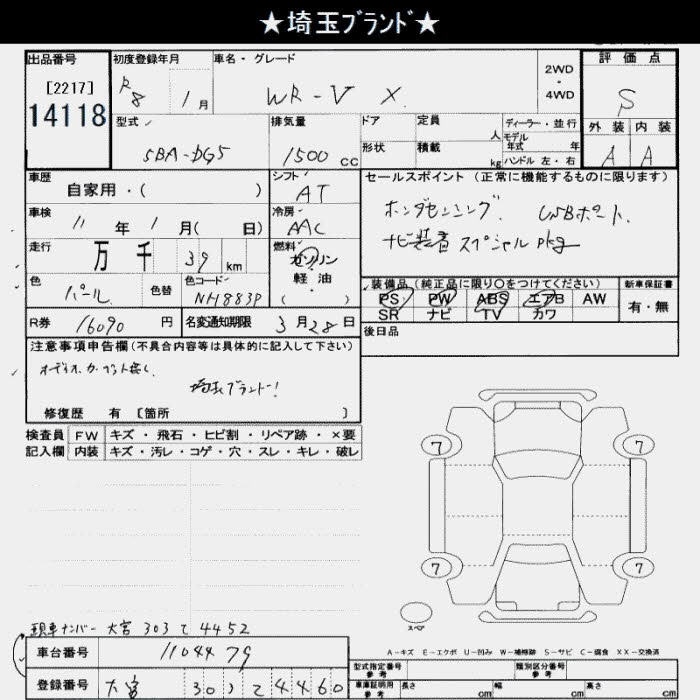 ★埼玉ﾌﾞﾗﾝﾄﾞ★
出品番号
[2217]
14118
初度登録年月
R8 1 月
車名・グレード
WR-V X
2WD
・
4WD
評価点
S
外装 内装
A A
型式
5BA-DG5
排気量
1500 cc
ドア
形状
定員 人
積載 kg
ディーラー・並行
モデル年式 年
ハンドル 左・右
車歴
自家用・( )
シフト
AT
車検
11 年 1 月( 日)
冷房
AAC
走行
万 千 39 km
燃料
ガソリン
・
軽油
( )
色
パール
色替
色コード
NH883P
R券 16090 円
名変通知期限 3 月 28 日
セールスポイント (正常に機能するものに限ります)
ホンダセンシング. USBポート.
ナビ装着スペシャルpkg
装備品 (純正品に限り〇をつけてください)
PS PW ABS エアB AW
SR ナビ TV カワ
新車保証書
有・無
後日品
注意事項申告欄 (不具合内容等は具体的に記入して下さい)
オーディオ.カーペット無し
埼玉ブランド!
修復歴 有 [箇所 ]
検査員
記入欄
FW キズ・飛石・ヒビ割・リペア跡・×要
内装 キズ・汚レ・コゲ・穴・スレ・キレ・破レ
7 7
7 7
スペア
A－キズ E－エクボ U－凹み W－補修跡 S－サビ C－腐食 XX－交換済
現車ナンバー 大宮 303 て 4452
車台番号 1104479
登録番号 大宮 303 て 4460
型式指定番号
参考
類別区分番号
参考
車庫証明用
参考
長さ cm 幅 cm 高さ cm